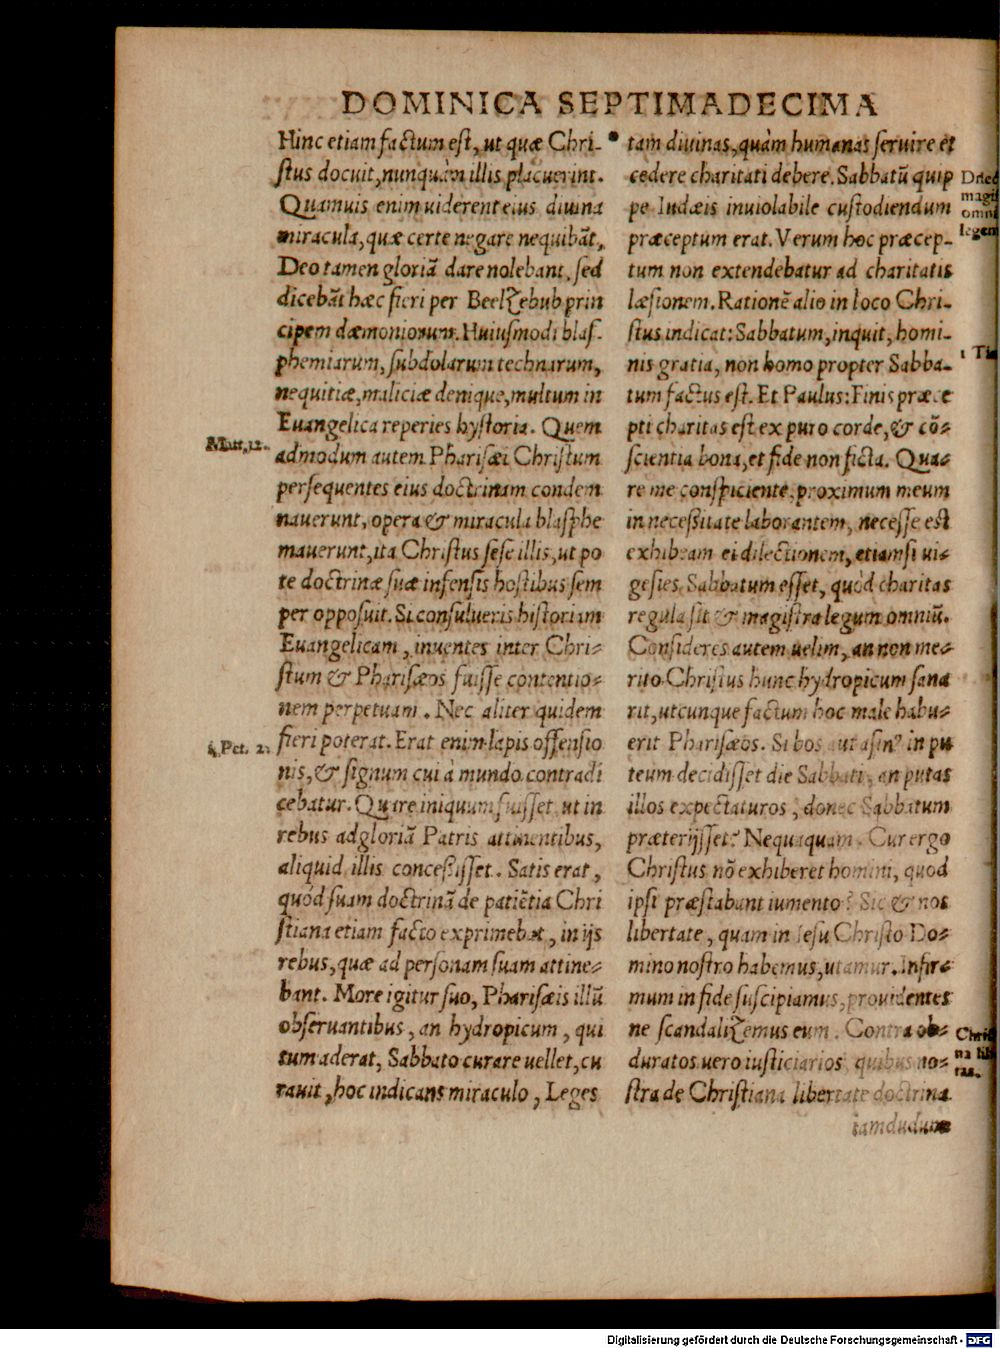 DOMINICA SEPTIMADECIMA
Hinc etiam factum est, ut quæ Chri-
stus docuit, nunquàm illis placuerint.
Quamuis enim uiderent eius diuina
miracula, quæ certe negare nequibãt,
Deo tamen gloriã dare nolebant, sed
dicebãt hæc fieri per Beelzebub prin
cipem dæmoniorum. Huiusmodi blas-
phemiarum, subdolarum technarum,
nequitiæ, maliciæ denique, multum in
Euangelica reperies hystoria. Quem
Matt. 12.
admodum autem Pharisæi Christum
persequentes eius doctrinam condem
nauerunt, opera & miracula blasphe
mauerunt, ita Christus sese illis, ut po
te doctrinæ suæ infensis hostibus sem
per opposuit. Si consulueris historiam
Euangelicam, inuentes inter Chri-
stum & Pharisæos fuisse contentio-
nem perpetuam. Nec aliter quidem
1. Pet. 2.
fieri poterat. Erat enim lapis offensio
nis, & signum cui à mundo contradi
cebatur. Quare iniquum fuisset ut in
rebus ad gloriã Patris attinentibus,
aliquid illis concessisset. Satis erat,
quòd suam doctrinã de patiẽtia Chri
stiana etiam facto exprimebat, in ijs
rebus, quæ ad personam suam attine-
bant. More igitur suo, Pharisæis illũ
obseruantibus, an hydropicum, qui
tum aderat, Sabbato curare uellet, cu
rauit, hoc indicans miraculo, Leges
tam diuinas, quàm humanas seruire et
cedere charitati debere. Sabbatũ quip
pe Iudæis inuiolabile custodiendum
magi
omni
legem
præceptum erat. Verum hoc præcep-
tum non extendebatur ad charitatis
læsionem. Rationẽ alio in loco Chri-
stus indicat: Sabbatum, inquit, homi-
1 Ti
nis gratia, non homo propter Sabba-
tum factus est. Et Paulus: Finis præce
pti charitas est ex puro corde, & cõ-
scientia bona, et fide non ficta. Qua-
re me conspiciente, proximum meum
in necessitate laborantem, necesse est
exhibeam ei dilectionem, etiamsi ui-
gesies Sabbatum esset, quòd charitas
regula sit & magistra legum omniũ.
Consideres autem uelim, an non me-
rito Christus hunc hydropicum sana
rit, utcunque factum hoc male habu-
erit Pharisæos. Si bos aut asinꝰ in pu
teum decidisset die Sabbati, an putas
illos expectaturos, donec Sabbatum
præterijsset? Nequaquam. Cur ergo
Christus nõ exhiberet homini, quod
ipsi præstabant iumento? Sic & nos
libertate, quam in Iesu Christo Do-
mino nostro habemus, utamur. Infir-
mum in fide suscipiamus, prouidentes
ne scandalizemus eum. Contra ob-
Chri
na lib
tas.
duratos uero iusticiarios, quibus no-
stra de Christiana libertate doctrina
iamdudum